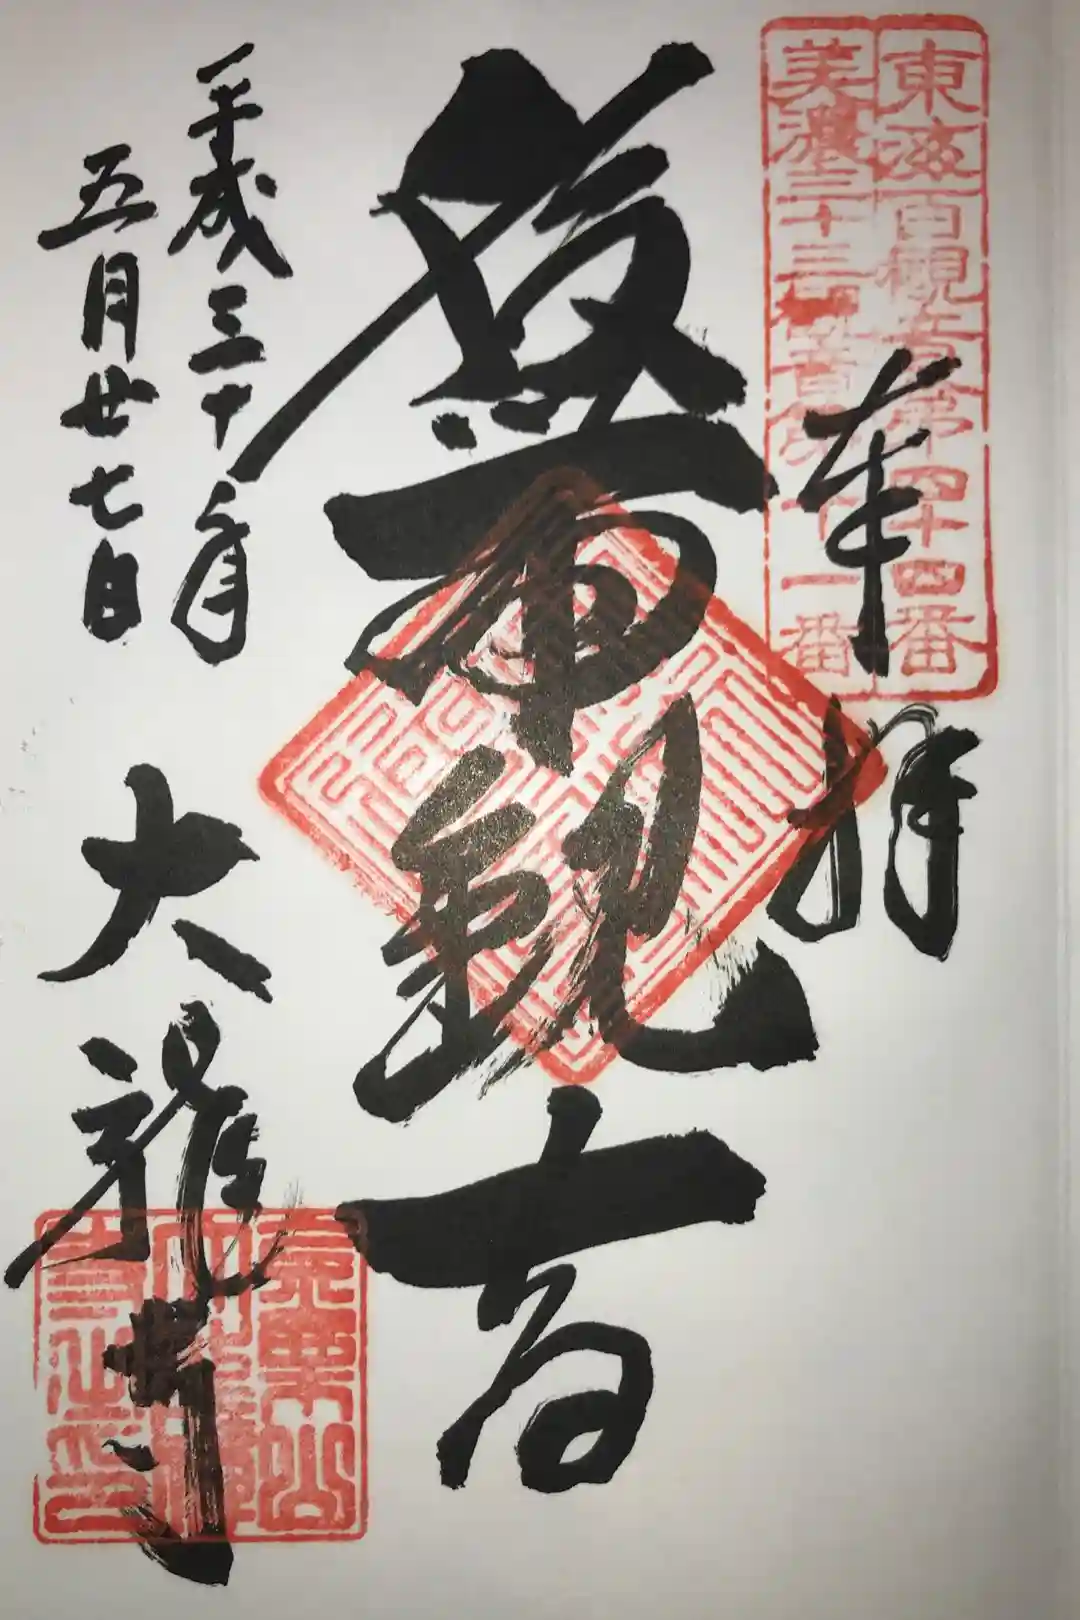 東海百観音第四十四番
美濃三十三観音第十一番
奉拝
観音
平成三十年
五月廿七日
大龍寺
金粟山
大龍禅
寺之印